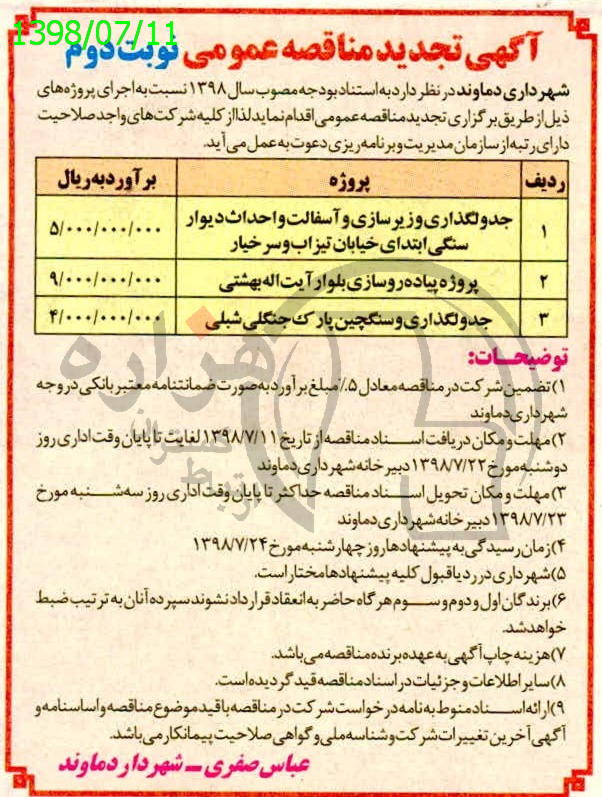 1398/07/11
آگهی تجدید مناقصه عمومی نوبت دوم
شهرداری دماوند در نظر دارد به استناد بودجه مصوب سال ۱۳۹۸ نسبت به اجرای پروژه‌های
ذیل از طریق برگزاری تجدید مناقصه عمومی اقدام نماید لذا از کلیه شرکت‌های واجد صلاحیت
دارای رتبه از سازمان مدیریت و برنامه ریزی دعوت به عمل می آید.
ردیف پروژه برآورد به ریال
۱ جدولگذاری و زیرسازی و آسفالت و احداث دیوار
سنگی ابتدای خیابان تیزاب و سرخیار ۵/۰۰۰/۰۰۰/۰۰۰
۲ پروژه پیاده روسازی بلوار آیت اله بهشتی ۹/۰۰۰/۰۰۰/۰۰۰
۳ جدولگذاری و سنگچین پارک جنگلی شبلی ۴/۰۰۰/۰۰۰/۰۰۰
توضیحات:
۱) تضمین شرکت در مناقصه معادل ۵٪ مبلغ برآورد به صورت ضمانتنامه معتبر بانکی در وجه
شهرداری دماوند
۲) مهلت و مکان دریافت اسناد مناقصه از تاریخ ۱۳۹۸/۷/۱۱ لغایت تا پایان وقت اداری روز
دوشنبه مورخ ۱۳۹۸/۷/۲۲ دبیرخانه شهرداری دماوند
۳) مهلت و مکان تحویل اسناد مناقصه حداکثر تا پایان وقت اداری روز سه‌شنبه مورخ
۱۳۹۸/۷/۲۳ دبیرخانه شهرداری دماوند
۴) زمان رسیدگی به پیشنهادها روز چهارشنبه مورخ ۱۳۹۸/۷/۲۴
۵) شهرداری در رد یا قبول کلیه پیشنهادها مختار است.
۶) برندگان اول و دوم و سوم هرگاه حاضر به انعقاد قرارداد نشوند سپرده آنان به ترتیب ضبط
خواهد شد.
۷) هزینه چاپ آگهی به عهده برنده مناقصه می باشد.
۸) سایر اطلاعات و جزئیات در اسناد مناقصه قید گردیده است.
۹) ارائه اسناد منوط به نامه درخواست شرکت در مناقصه با قید موضوع مناقصه و اساسنامه و
آگهی آخرین تغییرات شرکت و شناسه ملی و گواهی صلاحیت پیمانکار می باشد.
عباس صفری - شهردار دماوند
هزاره